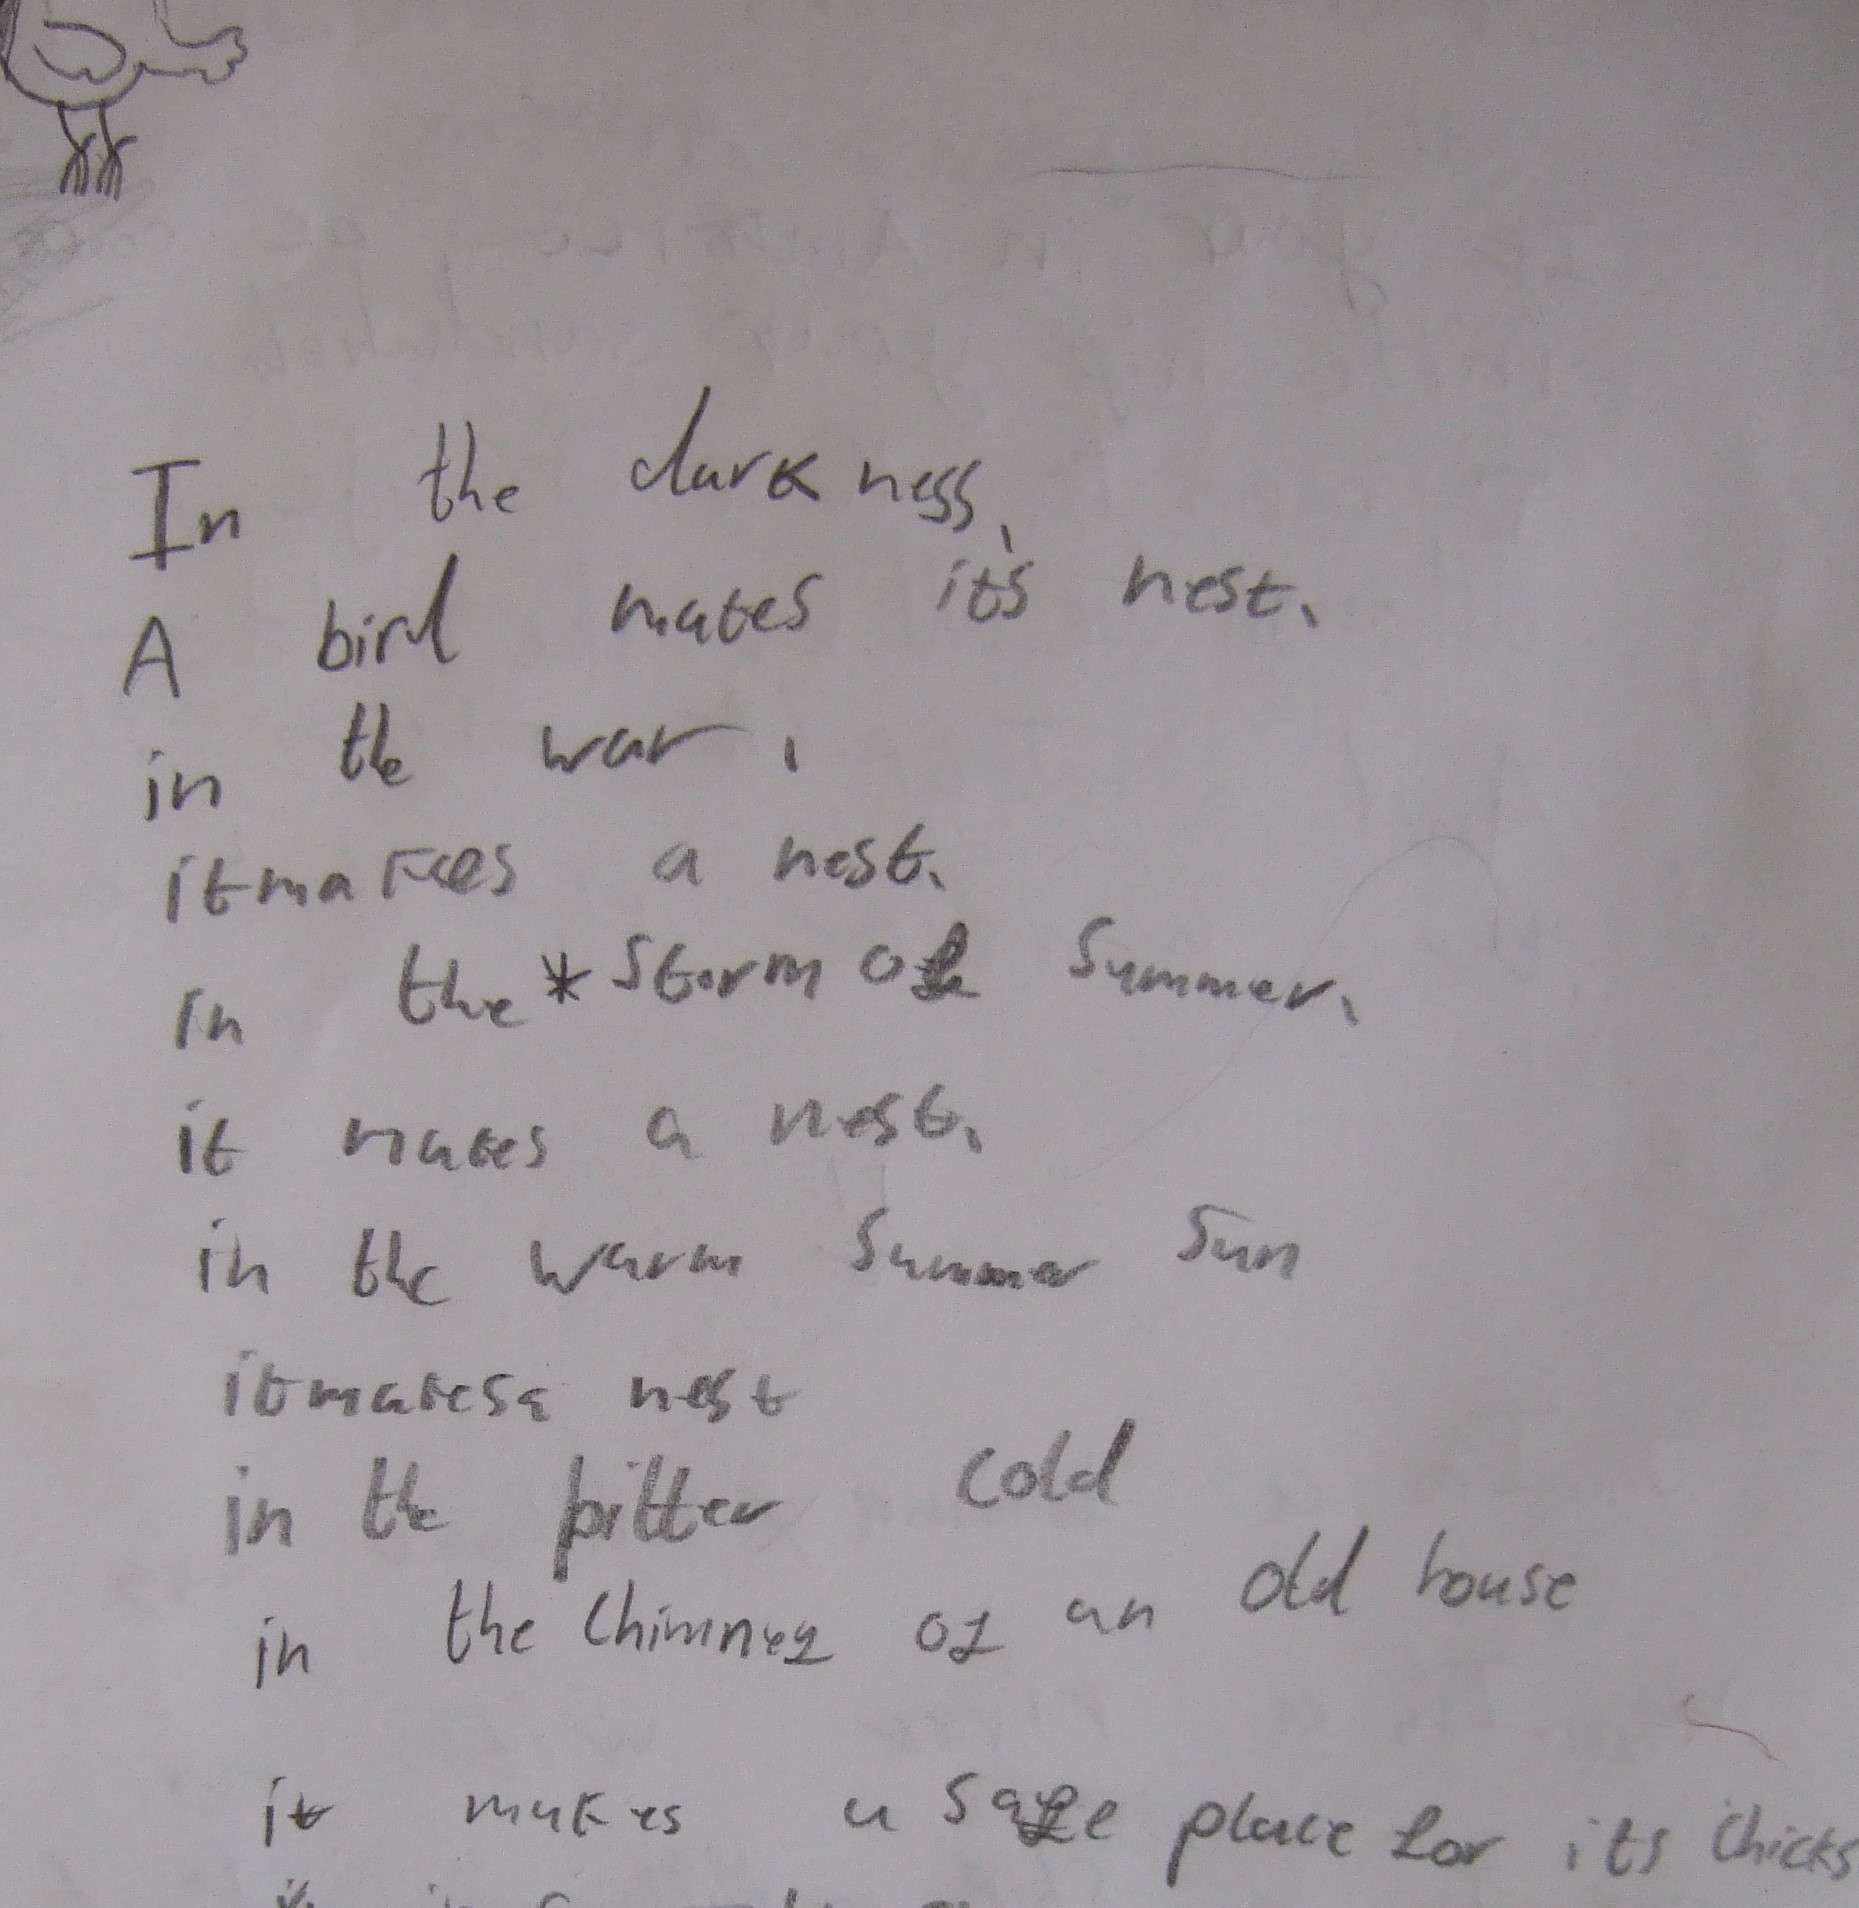 In the darkness,
A bird makes it's nest.
in the war,
it makes a nest.
in the * storm of Summer.
it makes a nest.
in the warm Summer Sun
it makes a nest
in the bitter cold
in the chimney of an old house
it makes a safe place for its chicks